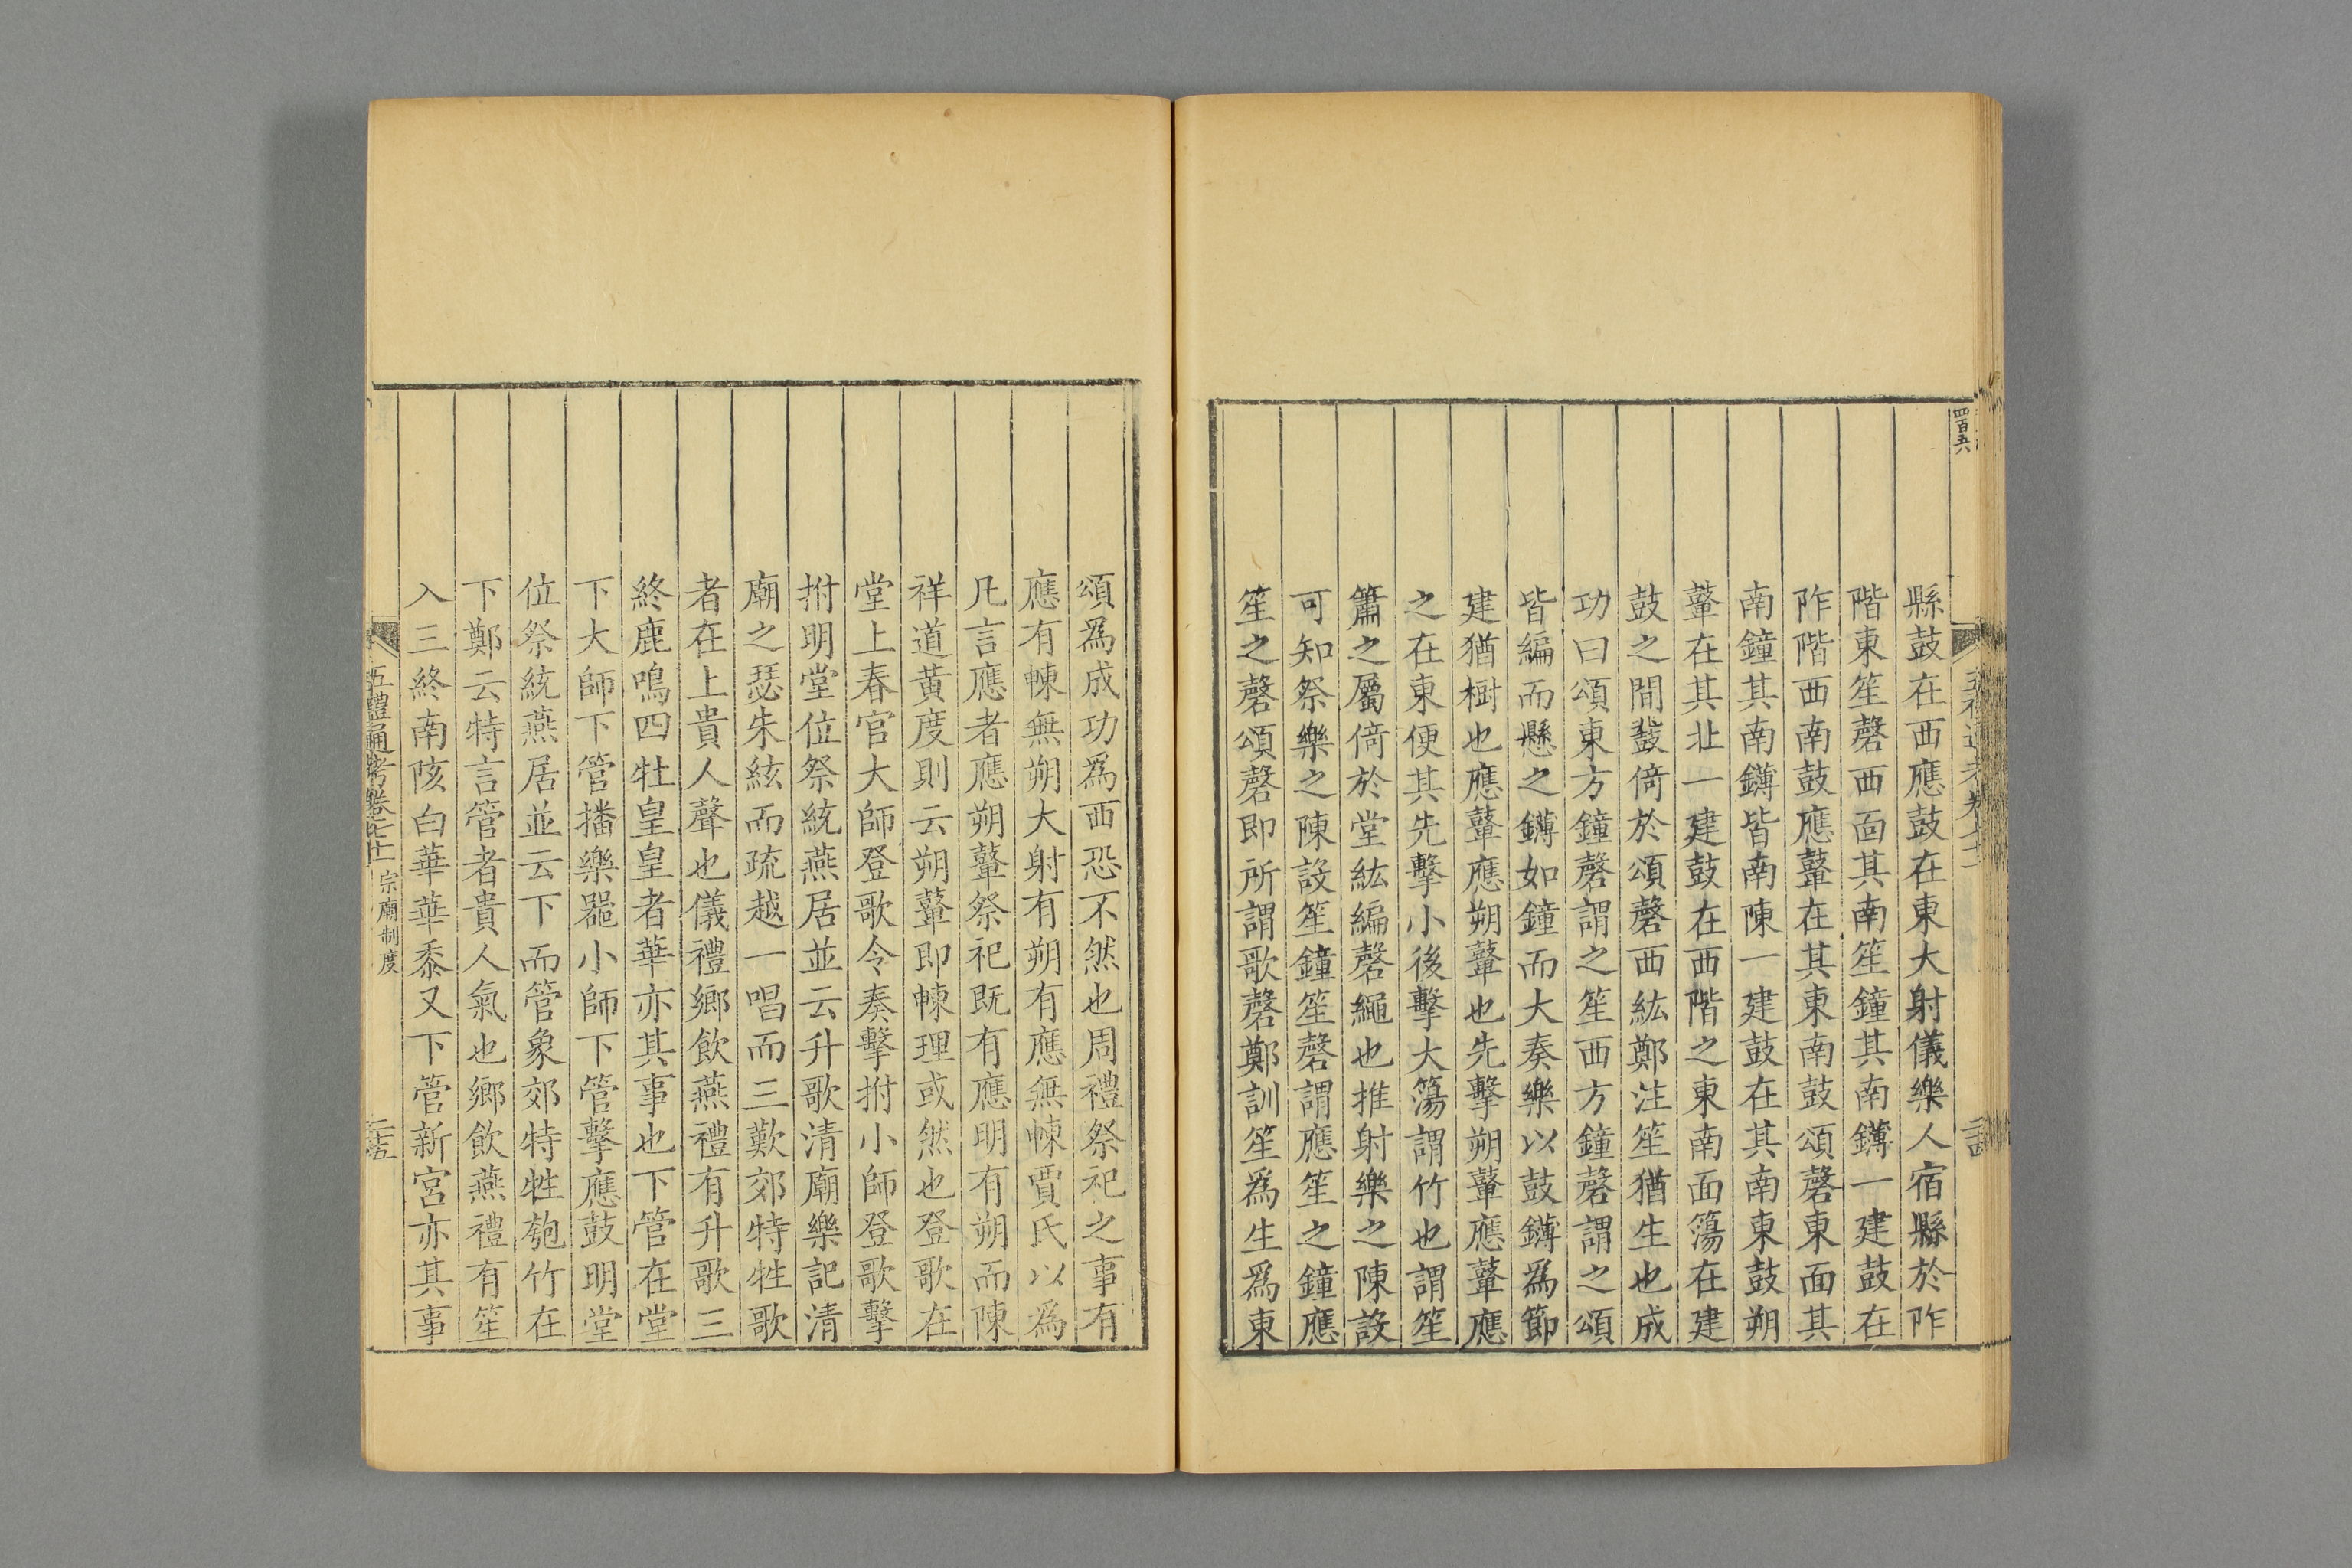 四百五六
縣鼓在西應鼓在東大射儀樂人宿縣於阼
階東笙磬西面其南笙鐘其南鑮一建鼓在
阼階西南鼓應鼙在其東南鼓頌磬東面其
南鐘其南鑮皆南陳一建鼓在其南東鼓朔
鼙在其北一建鼓在西階之東南面簜在建
鼓之間鼗倚於頌磬西紘鄭注笙猶生也成
功曰頌東方鐘磬謂之笙西方鐘磬謂之頌
皆編而懸之鑮如鐘而大奏樂以鼓鑮為節
建猶樹也應鼙應朔鼙也先擊朔鼙應鼙應
之在東便其先擊小後擊大簜謂竹也謂笙
簫之屬倚於堂紘編磬繩也推射樂之陳設
可知祭樂之陳設笙鐘笙磬謂應笙之鐘應
笙之磬頌磬即所謂歌磬鄭訓笙為生為東
頌爲成功爲西恐不然也周禮祭祀之事有
應有朄無朔大射有朔有應無朄賈氏以為
凡言應者應朔鼙祭祀既有應明有朔而陳
祥道黃度則云朔鼙即朄理或然也登歌在
堂上春官大師登歌令奏擊拊小師登歌擊
拊明堂位祭統燕居並云升歌清廟樂記清
廟之瑟朱絃而疏越一唱而三歎郊特牲歌
者在上貴人聲也儀禮鄉飲燕禮有升歌三
終鹿鳴四牡皇皇者華亦其事也下管在堂
下大師下管播樂噐小師下管擊應鼓明堂
位祭統燕居並云下而管象郊特牲匏竹在
下鄭云特言管者貴人氣也鄉飲燕禮有笙
入三終南陔白華華黍又下管新宮亦其事
五禮通考卷七十二 宗廟制度 二十五